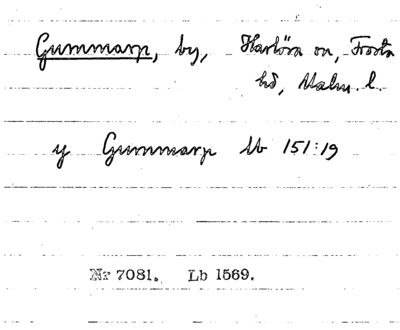 Gummarp, by, Harlösa sn, Frosta
hd, Malm. l.
y Gummarp Lb 151:19
Nr 7081. Lb 1569.